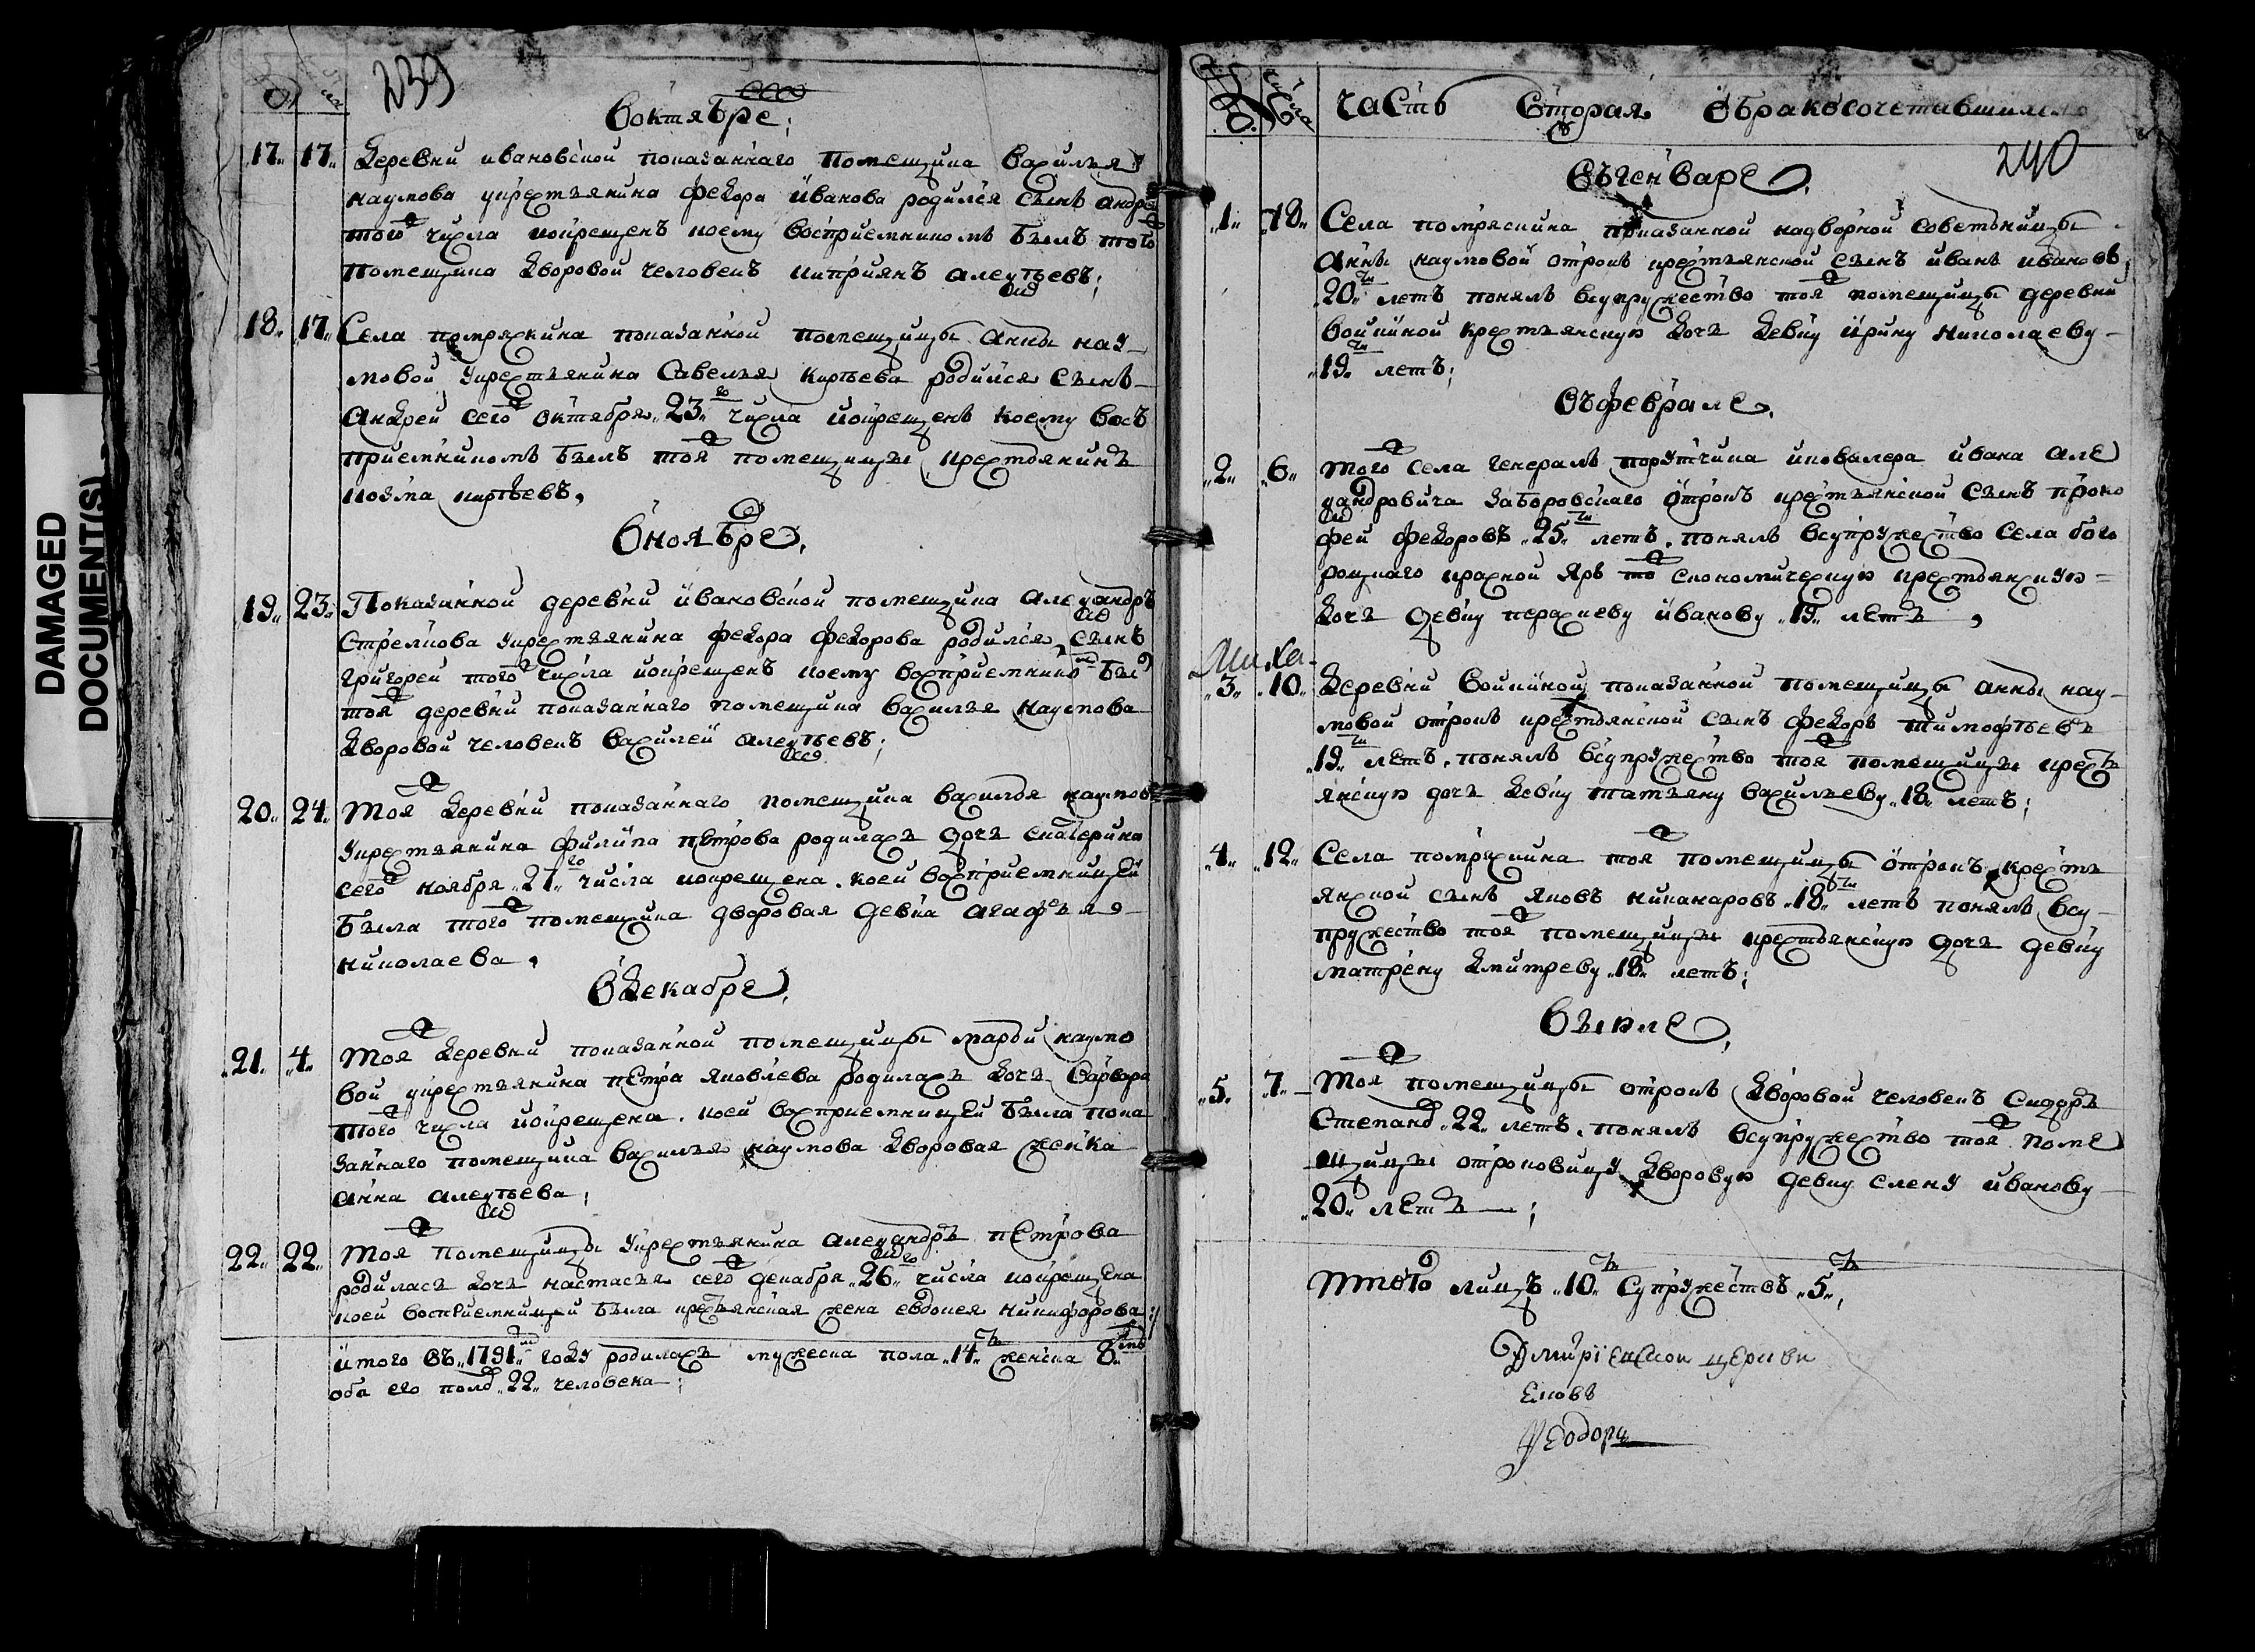 DAMAGED
DOCUMENT(S)
239
воктябре;
17. 17. Деревни ивановской показаннаго помещика василья
наумова укрестьянина федора иванова родился сынъ андре
того числа иокрещенъ коему восприемникомъ былъ того
помещика дворовой человекъ киприянъ алексеевъ;
18. 17. Села помряскина показанной помещицы Анны нау-
мовой укрестьянина Савелья родился сынъ
Андрей сего октября 23 го числа иокрещенъ коему вось
приемникомъ былъ тоя помещицы крестьянинъ
козма
вноябре,
19. 23. Показанной деревни ивановской помещика александръ
Стрелкова укрестьянина федора федорова родился сынъ
григорей того числа иокрещенъ коему восприемнико бы
тоя деревни показаннаго помещика василья наумова
дворовой человекъ василей алексеевъ;
20. 24. Тоя деревни показаннаго помещика василья наумов
укрестьянина филипа петрова родилась дочь екатерина
сего ноября 27 го числа иокрещена. коей восприемницей
была того помещика дворовая девка агафья
николаева,
вдекабре,
21. 4. Тоя деревни показанной помещицы марьи наумо
вой укрестьянина петра яковлева родилась дочь варвара
того числа иокрещена. коей восприемницей была пока
заннаго помещика василья наумова дворовая женка
анна алексеева;
22. 22. Тоя помещицы укрестьянина александръ петрова
родилась дочь настасья сего декабря 26 го числа иокрещена
коей восприемницей была крестьянская жена евдокея никифорова;
итого въ 1791 м году родилась мужеска пола 14 ть женска 8 мь
оба его пола 22 человека;
числа
часть вторая обракосочетавшихся
240
въгенваре,
1. 18. Села помряскина показанной надворной советницы
Анны наумовой отрокъ крестьянской сынъ иванъ ивановъ
20 ти летъ понялъ всупружество тоя помещицы деревни
войкиной крестьянскую дочь девку ирину николаеву
19 ти летъ;
въфеврале,
2. 6. того села генералъ порутчика икавалера ивана але
ксандровича заборовскаго отрокъ крестьянской сынъ проко
фей федоровъ 25 ти летъ. понялъ всупружество села бого
роцкаго красной яръ то економическую крестьянскую
дочь девку ивакову 19 летъ,
Миха
3. 10. Деревни войкиной показанной помещицы анны нау-
мовой отрокъ крестьянской сынъ федоръ тимофеевъ
19 ти летъ. понялъ всупружество тоя помещицы кресть
янскую дочь девку татьяну васильеву 18 летъ;
4. 12. Села помряскина тоя помещицы отрокъ кресть
янской сынъ яковъ никаноровъ 18 ти летъ понялъ всу-
пружество тоя помещицы крестьянскую дочь девку
матрену дмитреву 18 летъ;
въиюле,
5. 7. Тоя помещицы отрокъ дворовой человекъ Сидоръ
Степано 22 летъ. понялъ всупружество тоя поме
щицы отроковицу дворовую девку елену иванову
20 летъ;
Итого лицъ 10 ть супружествъ 5 ть,
Дмитриевской церкви
Феодора